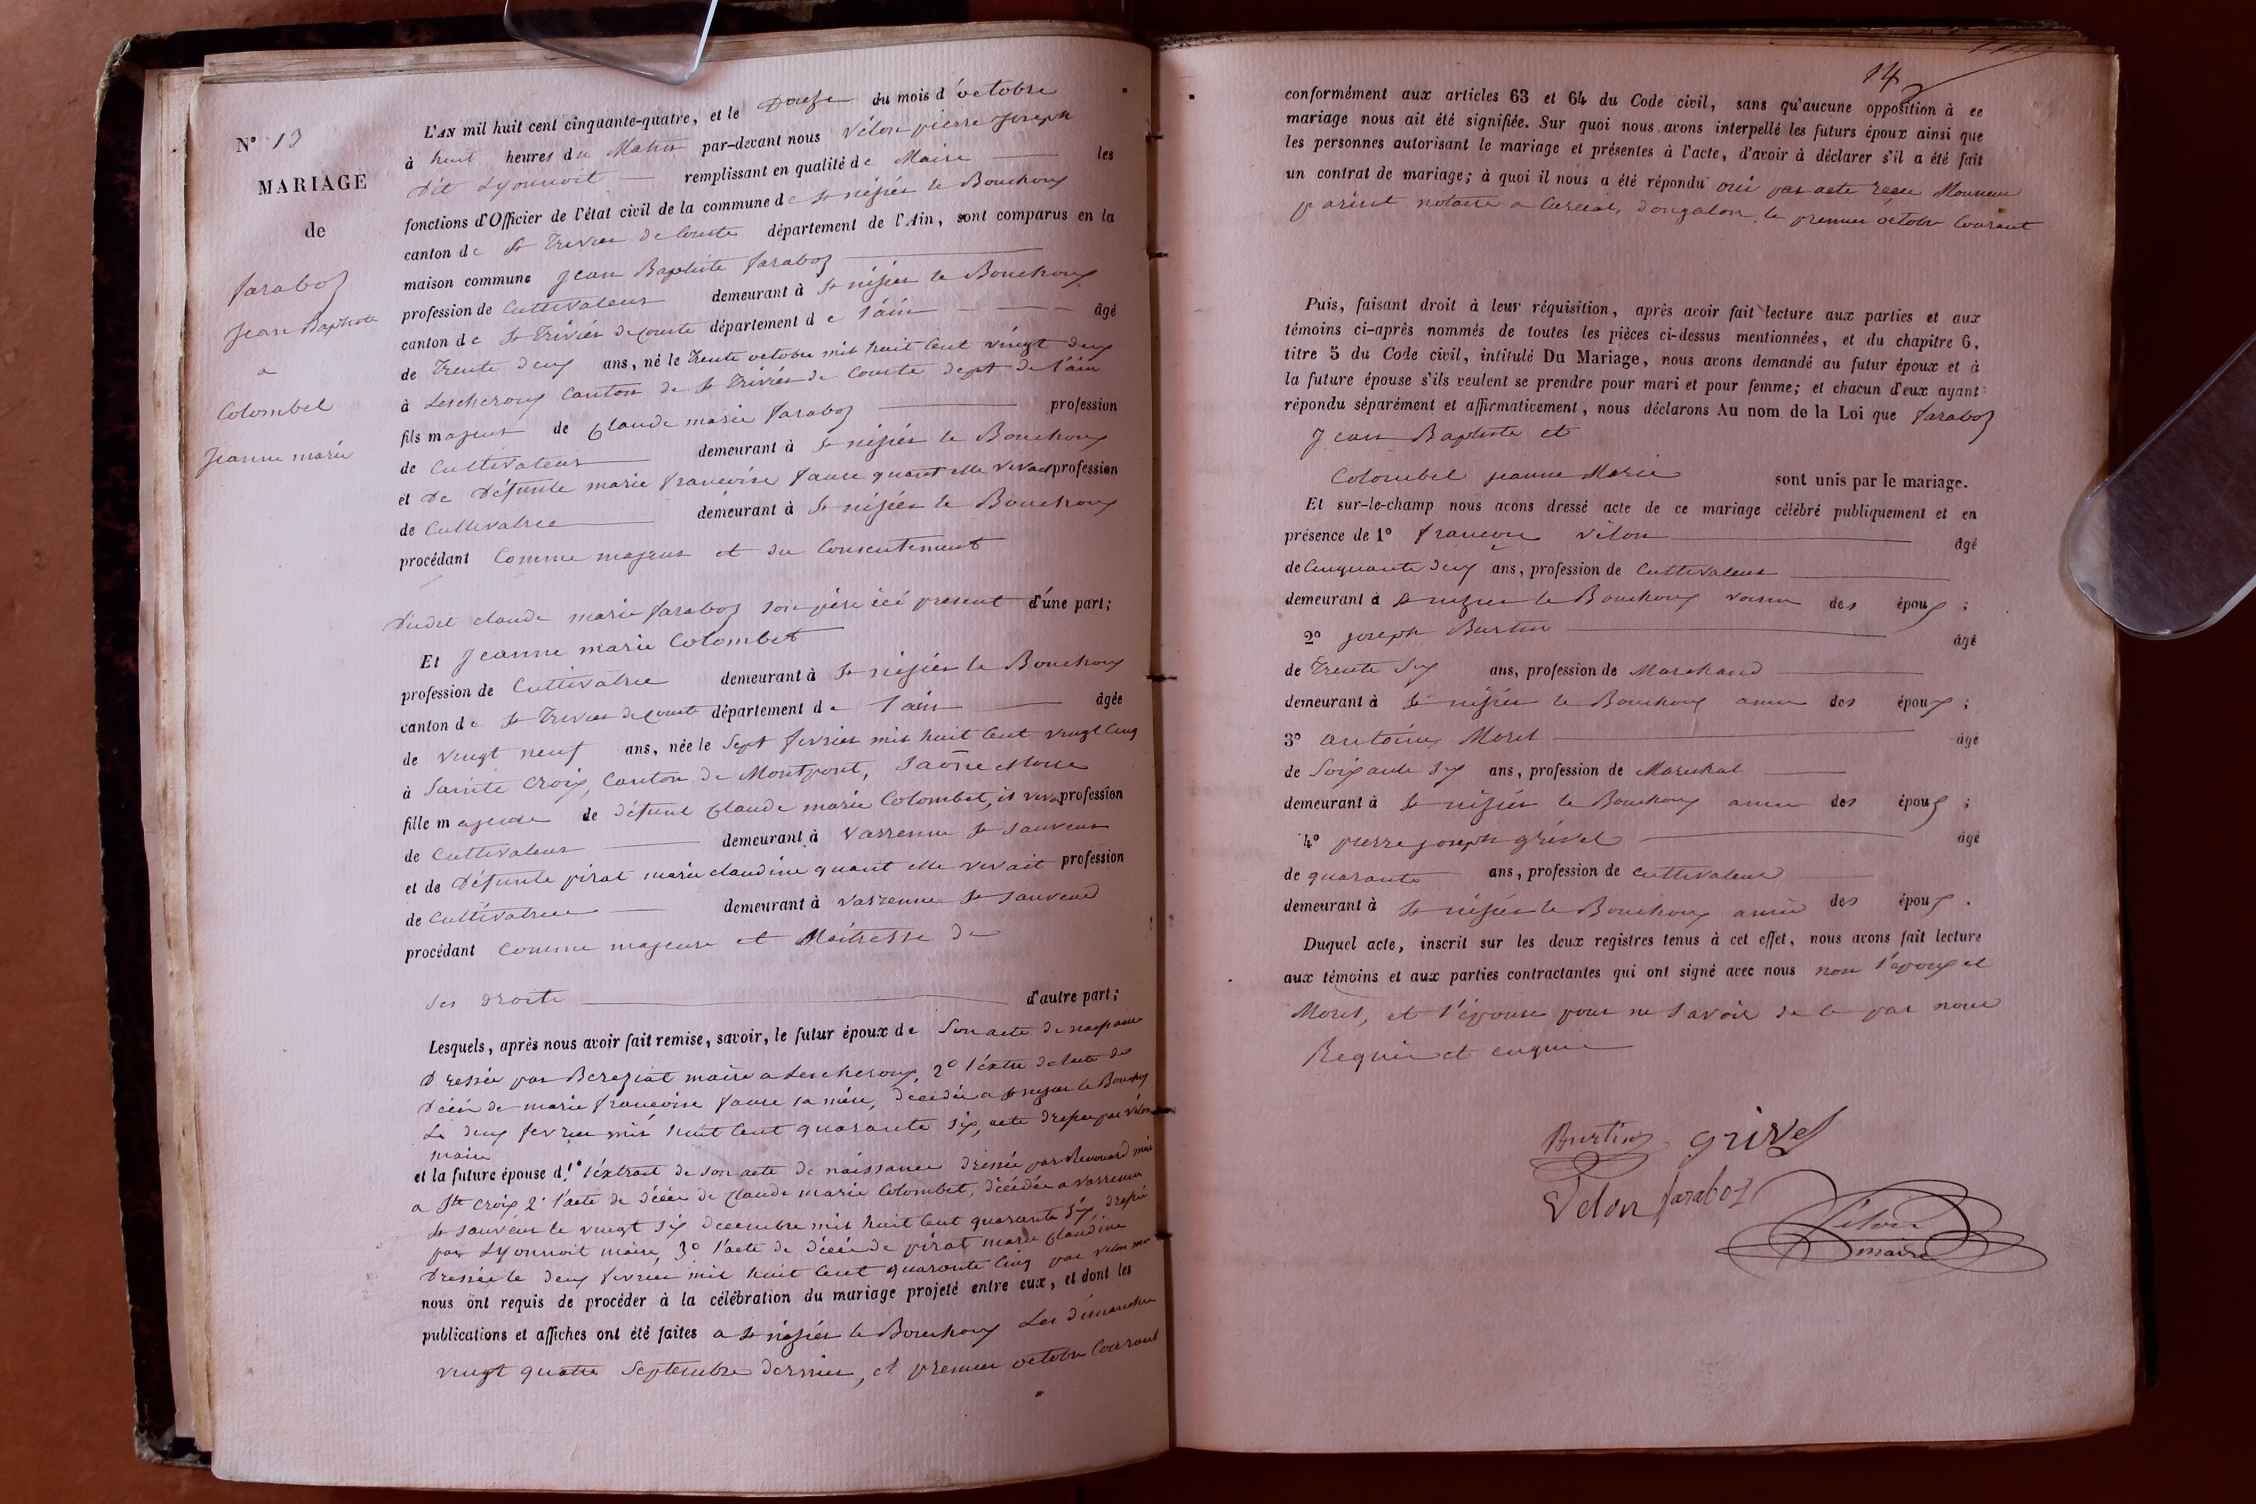 N° 13
MARIAGE
de
faraboz
Jean Baptiste
a
Colombet
Jeanne marie
L'AN mil huit cent cinquante-quatre, et le Douze du mois d'octobre
à huit heures du Matin par-devant nous vélon pierre joseph
Dit Lyonnoit remplissant en qualité de Maire les
fonctions d'Officier de l'état civil de la commune de St nizier le Bouchoux
canton de St Trivier de Courte département de l'Ain, sont comparus en la
maison commune Jean Baptiste faraboz
profession de Cultivateur demeurant à St nizier le Bouchoux
canton de St Trivier de courte département de l'ain âgé
de Trente deux ans, né le Trente octobre mil huit Cent vingt deux
à Lescheroux Canton de St Trivier de Courte dept de l'ain
fils majeur de Claude marie faraboz profession
de Cultivateur demeurant à St nizier le Bouchoux
et De Défunte marie francoise faure quant elle vivait profession
de Cultivatrice demeurant à St nizier le Bouchoux
procédant Comme majeur et du Consentement
Dudit claude marie faraboz son père ici present d'une part;
Et Jeanne marie Colombet
profession de Cultivatrice demeurant à St nizier le Bouchoux
canton de St Trivier de courte département de l'ain âgée
de vingt neuf ans, née le Sept fevrier mil huit Cent vingt Cinq
à Sainte Croix, Canton de Montpont, Saône et Loire
fille majeure de défunt Claude marie Colombet, il viva profession
de Cultivateur demeurant à varrenne St Sauveur
et de Défunte pirat marie claudine quant elle vivait profession
de Cultivatrice demeurant à varrenne St Sauveur
procédant Comme majeure et Maîtresse de
Ses Droits d'autre part;
Lesquels, après nous avoir fait remise, savoir, le futur époux de Son acte de naissance
Dressée par Bereziat maire a Lescheroux, 2° l'extrait de lacte de
Décès de marie francoise faure sa mère, Décédée a St nizier le Bouchoux
Le deux fevrier mil huit Cent quarante Six, acte Dressée par vélon
maire
et la future épouse d 1° l'extrait de son acte de naissance Dressée par Renouard maire
a Ste Croix 2° l'acte de Décès de Claude marie Colombet, décédée a varrenne
St Sauveur le vingt Six Decembre mil huit Cent quarante Six, Dressée
par Lyonnoit maire 3° l'acte de Décès de pirat marie Claudine
Dressée le Deux fevrier mil huit Cent quarante Cinq par vélon
nous ont requis de procéder à la célébration du mariage projeté entre eux, et dont les
publications et affiches ont été faites a St nizier le Bouchoux Les dimanches
vingt quatre Septembre Dernier, et premier octobre Courant
14
conformément aux articles 63 et 64 du Code civil, sans qu'aucune opposition à ce
mariage nous ait été signifiée. Sur quoi nous avons interpellé les futurs époux ainsi que
les personnes autorisant le mariage et présentes à l'acte, d'avoir à déclarer s'il a été fait
un contrat de mariage; à quoi il nous a été répondu oui par acte reçu Monsieur
notaire a Curciat Dongalon, le premier octobre Courant
Puis, faisant droit à leur réquisition, après avoir fait lecture aux parties et aux
témoins ci-après nommés de toutes les pièces ci-dessus mentionnées, et du chapitre 6,
titre 5 du Code civil, intitulé Du Mariage, nous avons demandé au futur époux et à
la future épouse s'ils veulent se prendre pour mari et pour femme; et chacun d'eux ayant
répondu séparément et affirmativement, nous déclarons Au nom de la Loi que faraboz
Jean Baptiste et
Colombet jeanne Marie sont unis par le mariage.
Et sur-le-champ nous avons dressé acte de ce mariage célébré publiquement et en
présence de 1° francois vélon âgé
de Cinquante deux ans, profession de Cultivateur
demeurant à St nizier le Bouchoux voisin des époux;
2° joseph Burtin âgé
de Trente Six ans, profession de Marchand
demeurant à St nizier le Bouchoux amie des époux;
3° antoine Morel âgé
de Soixante Six ans, profession de Marechal
demeurant à St nizier le Bouchoux amie des époux;
4° pierre joseph grivel âgé
de quarante ans, profession de Cultivateur
demeurant à St nizier le Bouchoux amie des époux.
Duquel acte, inscrit sur les deux registres tenus à cet effet, nous avons fait lecture
aux témoins et aux parties contractantes qui ont signé avec nous non l'époux et
Morel, et l'épouse pour ne Savoir de ce par nous
Requis et enquis
Burtin grivel
Velon faraboz
Vélon
maire